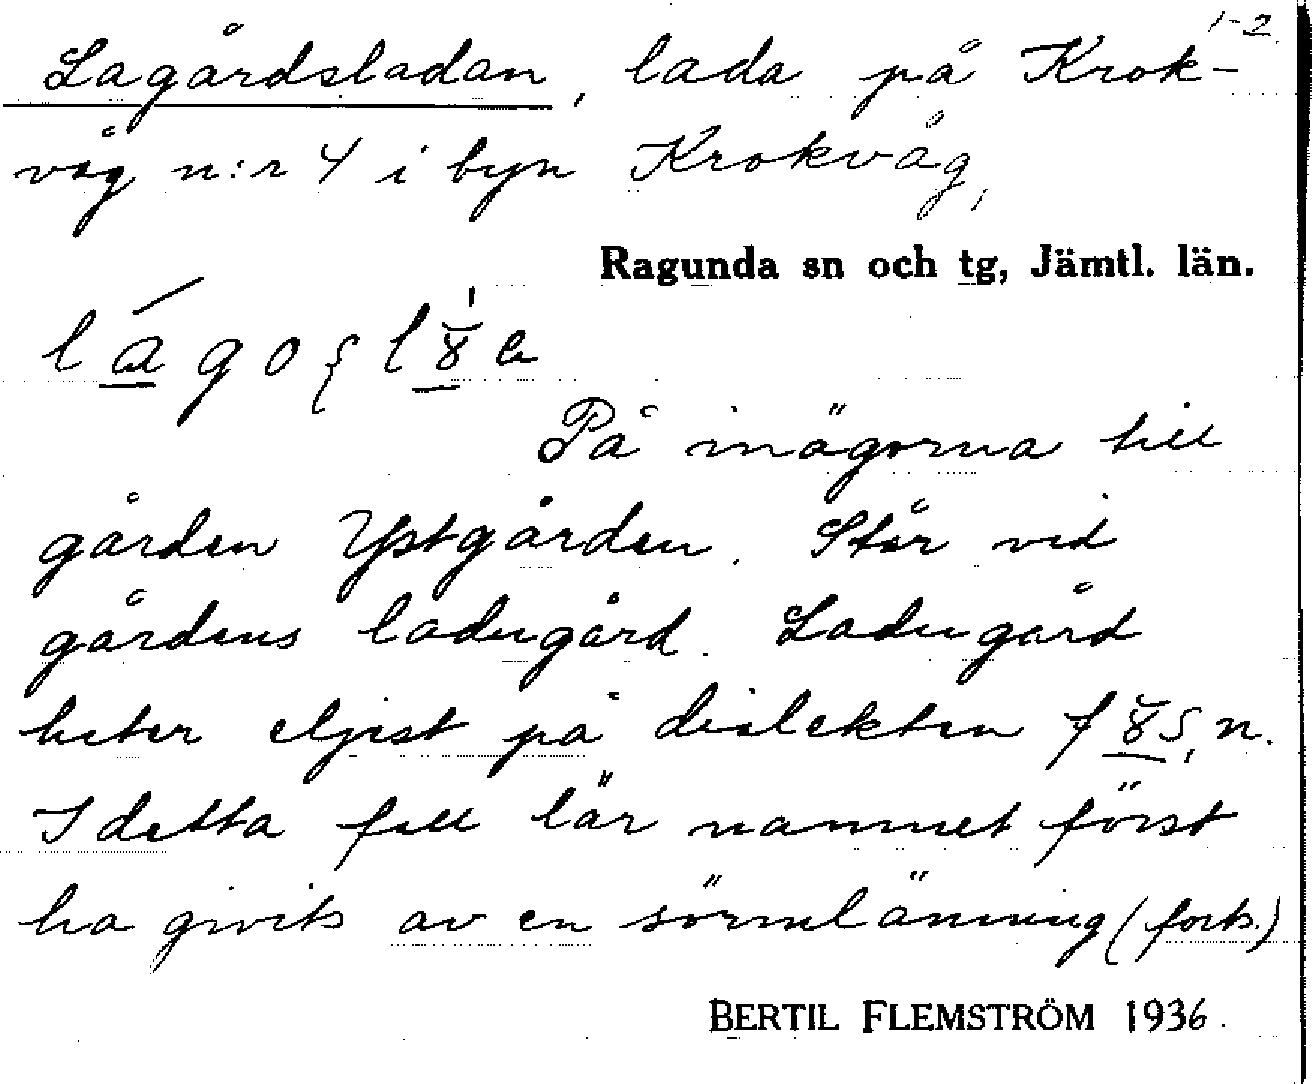 1-2
Lagårdsladan, lada på Krok-
våg n:r 4 i byn Krokvåg,
Ragunda sn och tg, Jämtl. län.
På inägorna till
gården Ystgården. Står vid
gårdens ladugård. Ladugård
heter eljest på dialekten
I detta fall lär namnet först
ha givits av en sörmlänning (forts.)
BERTIL FLEMSTRÖM 1936.